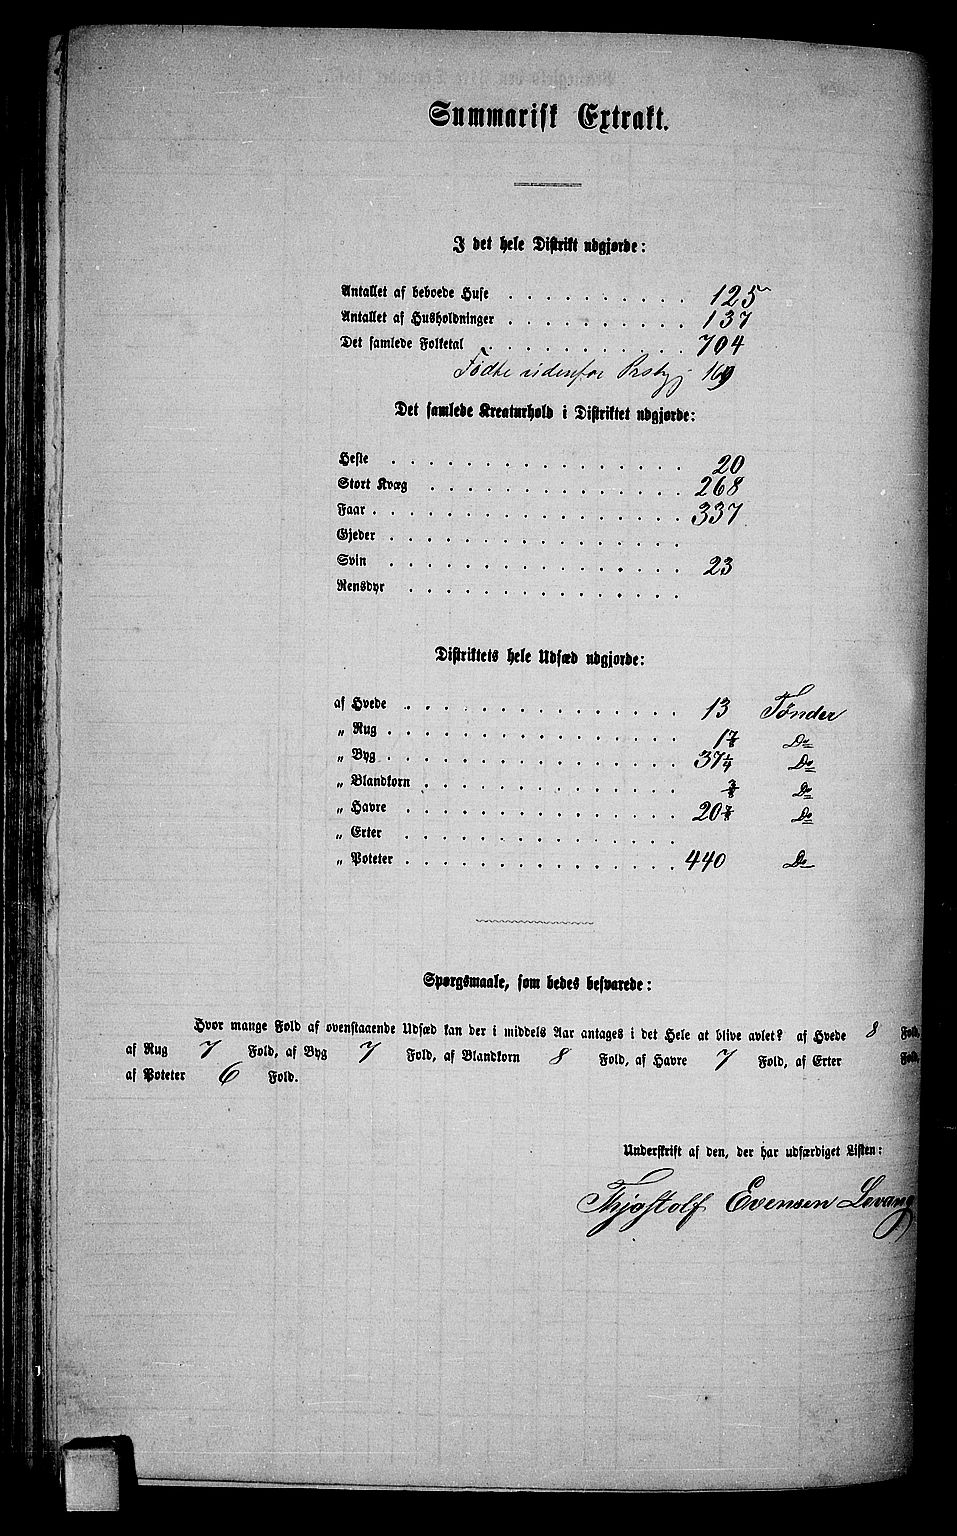 Summarisk Extrakt.
I det hele Distrikt udgjorde:
Antallet af beboede Huse . . . . . . . 125
Antallet af Husholdninger . . . . . . . 137
Det samlede Folketal . . . . . . . . 704
Fødte udenfor 169
Det samlede Kreaturhold i Distriktet udgjorde:
Heste . . . . . . . . . . . 20
Stort Kvæg . . . . . . . . . 268
Faar . . . . . . . . . . . 337
Gjeder . . . . . . . . . . .
Svin . . . . . . . . . . . 23
Rensdyr . . . . . . . . . .
Distriktets hele Udsæd udgjorde:
af Hvede . . . . . . . . . . 13 Tønder
„ Rug . . . . . . . . . . . 1⅞ Do
„ Byg . . . . . . . . . . . 37¼ Do
„ Blandkorn . . . . . . . . . ⅜ Do
„ Havre . . . . . . . . . . 20⅞ Do
„ Erter . . . . . . . . . .
„ Poteter . . . . . . . . . . 440 Do
Spørgsmaale, som bedes besvarede:
Hvor mange Fold af ovenstaaende Udsæd kan der i middels Aar antages i det Hele at blive avlet? af Hvede 8 Fold,
af Rug 7 Fold, af Byg 7 Fold, af Blandkorn 8 Fold, af Havre 7 Fold, af Erter Fold,
af Poteter 6 Fold.
Underskrift af den, der har udfærdiget Listen:
Thjostolf Evensen Levang